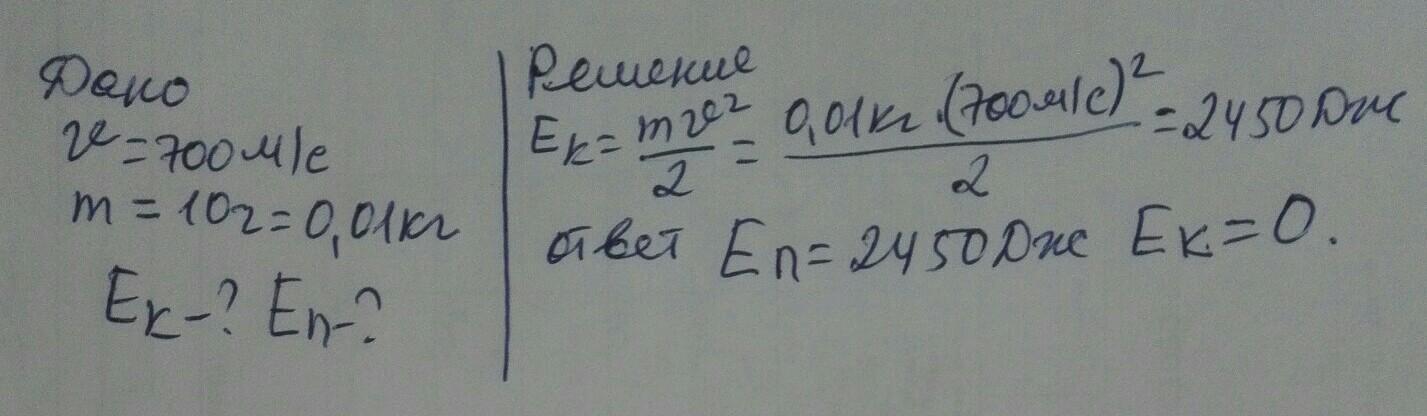 Дано
v = 700 м/с
m = 10 г = 0,01 кг
Eк - ? Eп - ?
Решение
Eк = mv²/2 = 0,01 кг · (700 м/с)²/2 = 2450 Дж
ответ Eп = 2450 Дж Eк = 0.